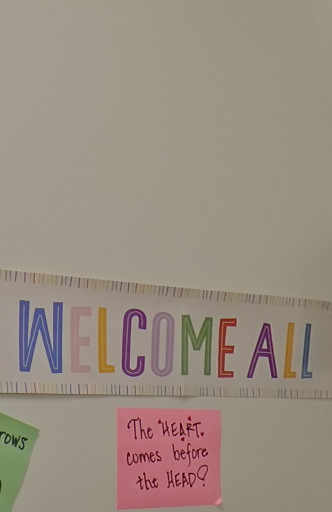 WELCOME ALL
rows
The "HEART"
comes before
the HEAD?